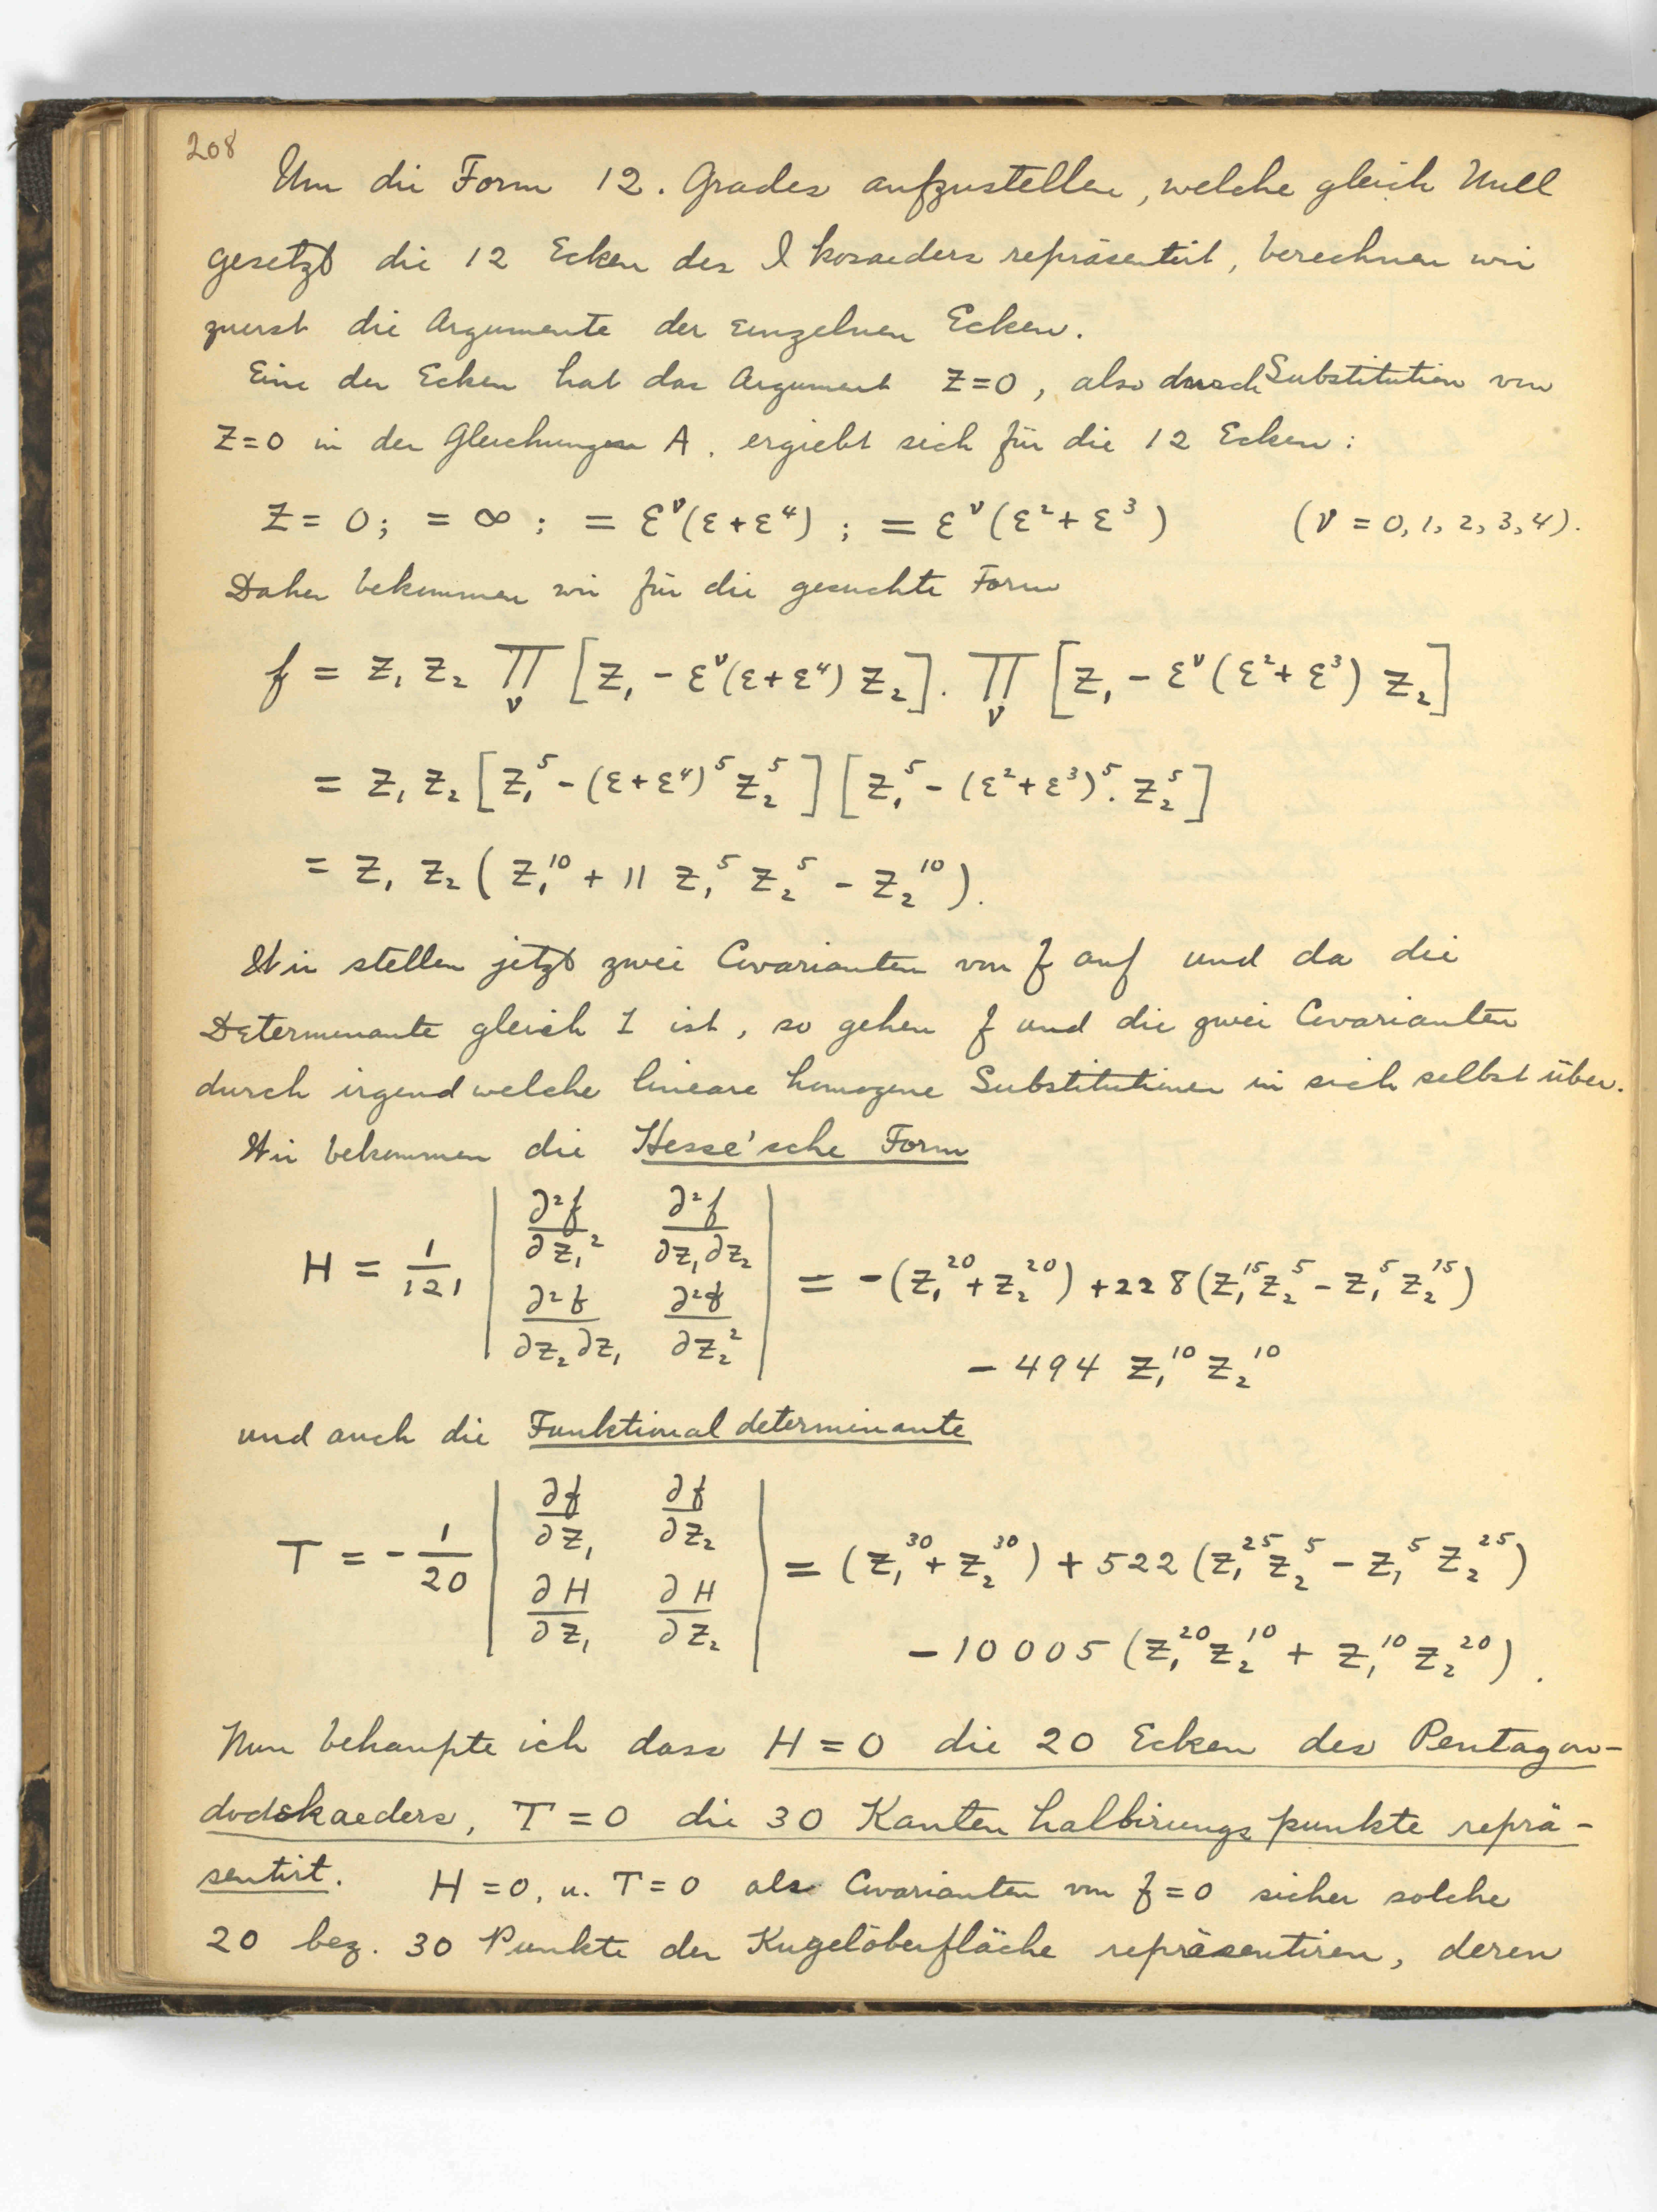 208
Um die Form 12. Grades aufzustellen, welche gleich Null
gesetzt die 12 Ecken des Ikosaeders repräsentirt, berechnen wir
zuerst die Argumente der einzelnen Ecken.
Eine der Ecken hat das Argument Z=0, also durch Substitution von
Z=0 in den Gleichungen A. ergiebt sich für die 12 Ecken:
Z = 0; = ∞; = ε^ν(ε+ε⁴); = ε^ν(ε²+ε³) (ν = 0,1,2,3,4).
Daher bekommen wir für die gesuchte Form
f = Z₁ Z₂ ∏_ν [Z₁ - ε^ν(ε+ε⁴) Z₂]. ∏_ν [Z₁ - ε^ν(ε²+ε³) Z₂]
= Z₁ Z₂ [Z₁⁵ - (ε+ε⁴)⁵ Z₂⁵] [Z₁⁵ - (ε²+ε³)⁵. Z₂⁵]
= Z₁ Z₂ (Z₁¹⁰ + 11 Z₁⁵ Z₂⁵ - Z₂¹⁰).
Wir stellen jetzt zwei Covarianten von f auf und da die
Determinante gleich 1 ist, so gehen f und die zwei Covarianten
durch irgendwelche lineare homogene Substitutionen in sich selbst über.
Wir bekommen die Hesse'sche Form
H = 1/121 | ∂²f/∂Z₁² ∂²f/∂Z₁∂Z₂ |
| ∂²f/∂Z₂∂Z₁ ∂²f/∂Z₂² | = -(Z₁²⁰+Z₂²⁰) + 228(Z₁¹⁵Z₂⁵ - Z₁⁵Z₂¹⁵)
- 494 Z₁¹⁰ Z₂¹⁰
und auch die Funktionaldeterminante
T = - 1/20 | ∂f/∂Z₁ ∂f/∂Z₂ |
| ∂H/∂Z₁ ∂H/∂Z₂ | = (Z₁³⁰+Z₂³⁰) + 522(Z₁²⁵Z₂⁵ - Z₁⁵Z₂²⁵)
- 10005 (Z₁²⁰Z₂¹⁰ + Z₁¹⁰Z₂²⁰).
Nun behaupte ich dass H = 0 die 20 Ecken des Pentagon-
dodekaeders, T = 0 die 30 Kantenhalbirungspunkte reprä-
sentirt. H = 0, u. T = 0 als Covarianten von f = 0 sicher solche
20 bez. 30 Punkte der Kugeloberfläche repräsentiren, deren